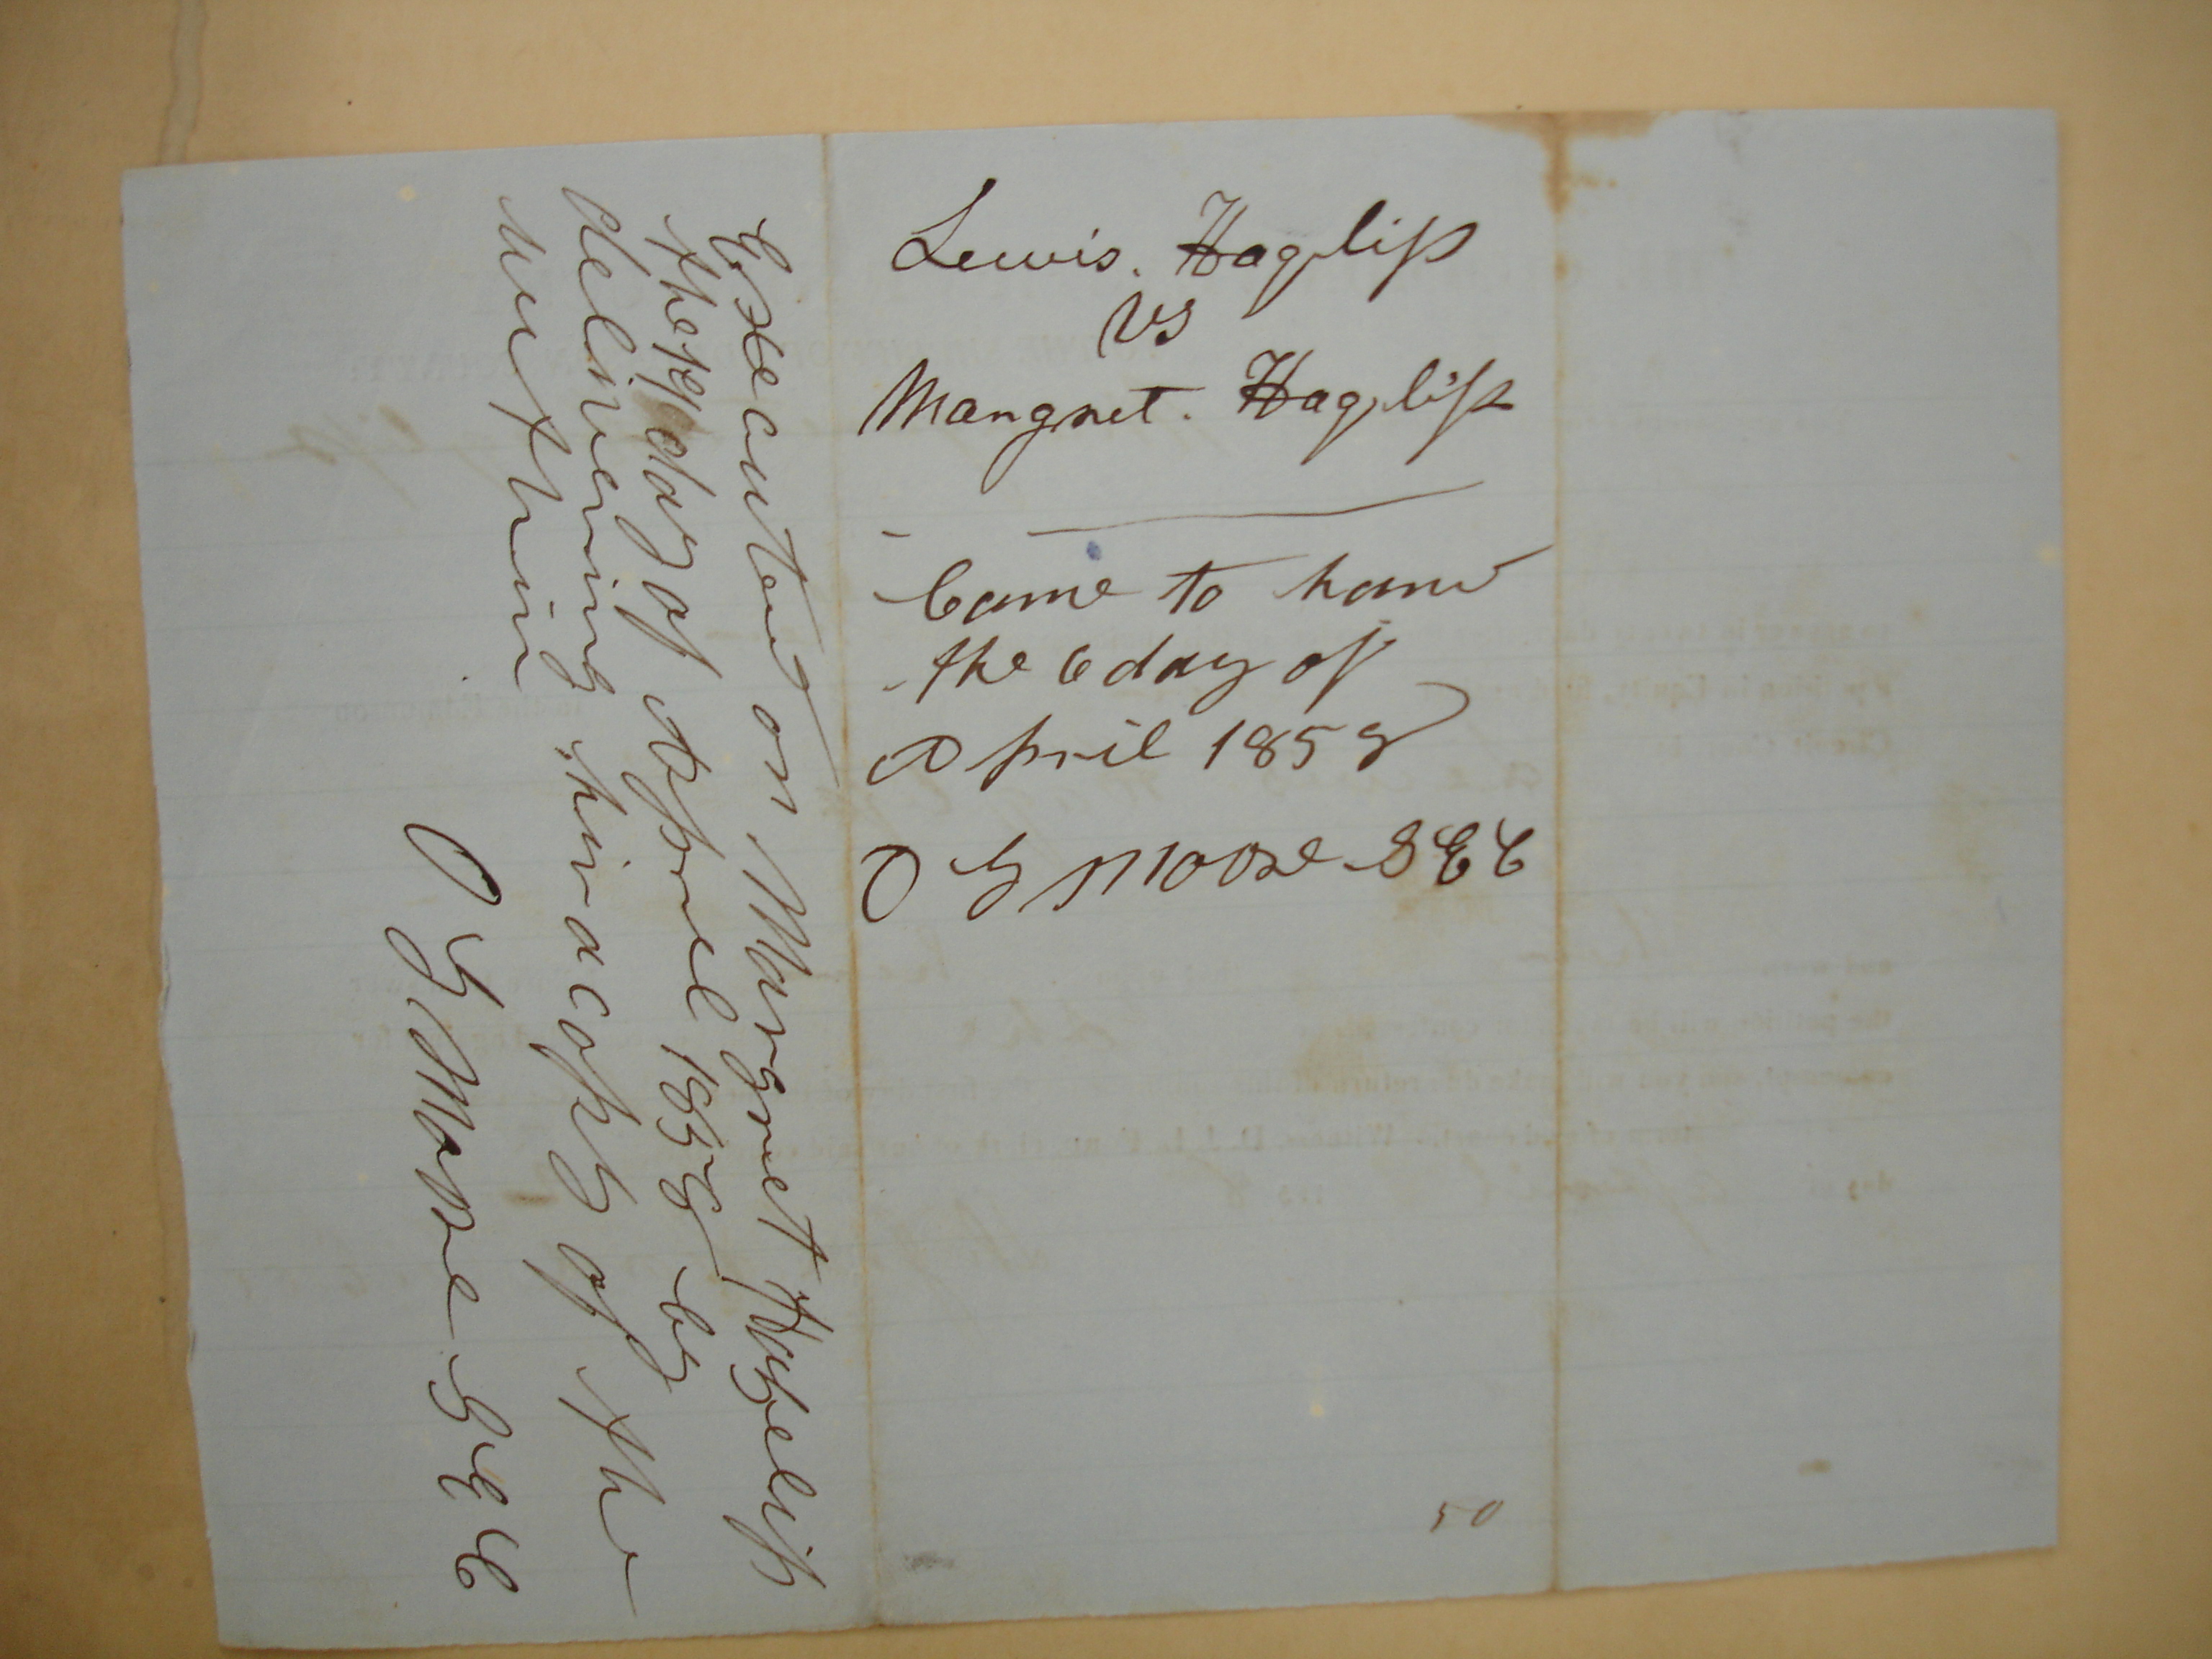 Lewis. Hageliss
vs
Margret. Hageliss
Came to hand
the 6 day of
April 1858
O G Moore S E C
50
Executed on Margret Hageliss
the day of Aprel 1858 by
delivering hir a copy of the
within
O G Moore S E C